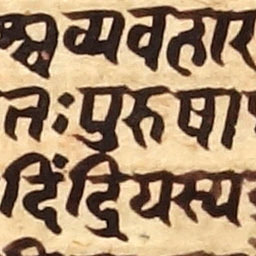 श्च व्यवहार
तः पुरुषा
दिंद्रियस्य